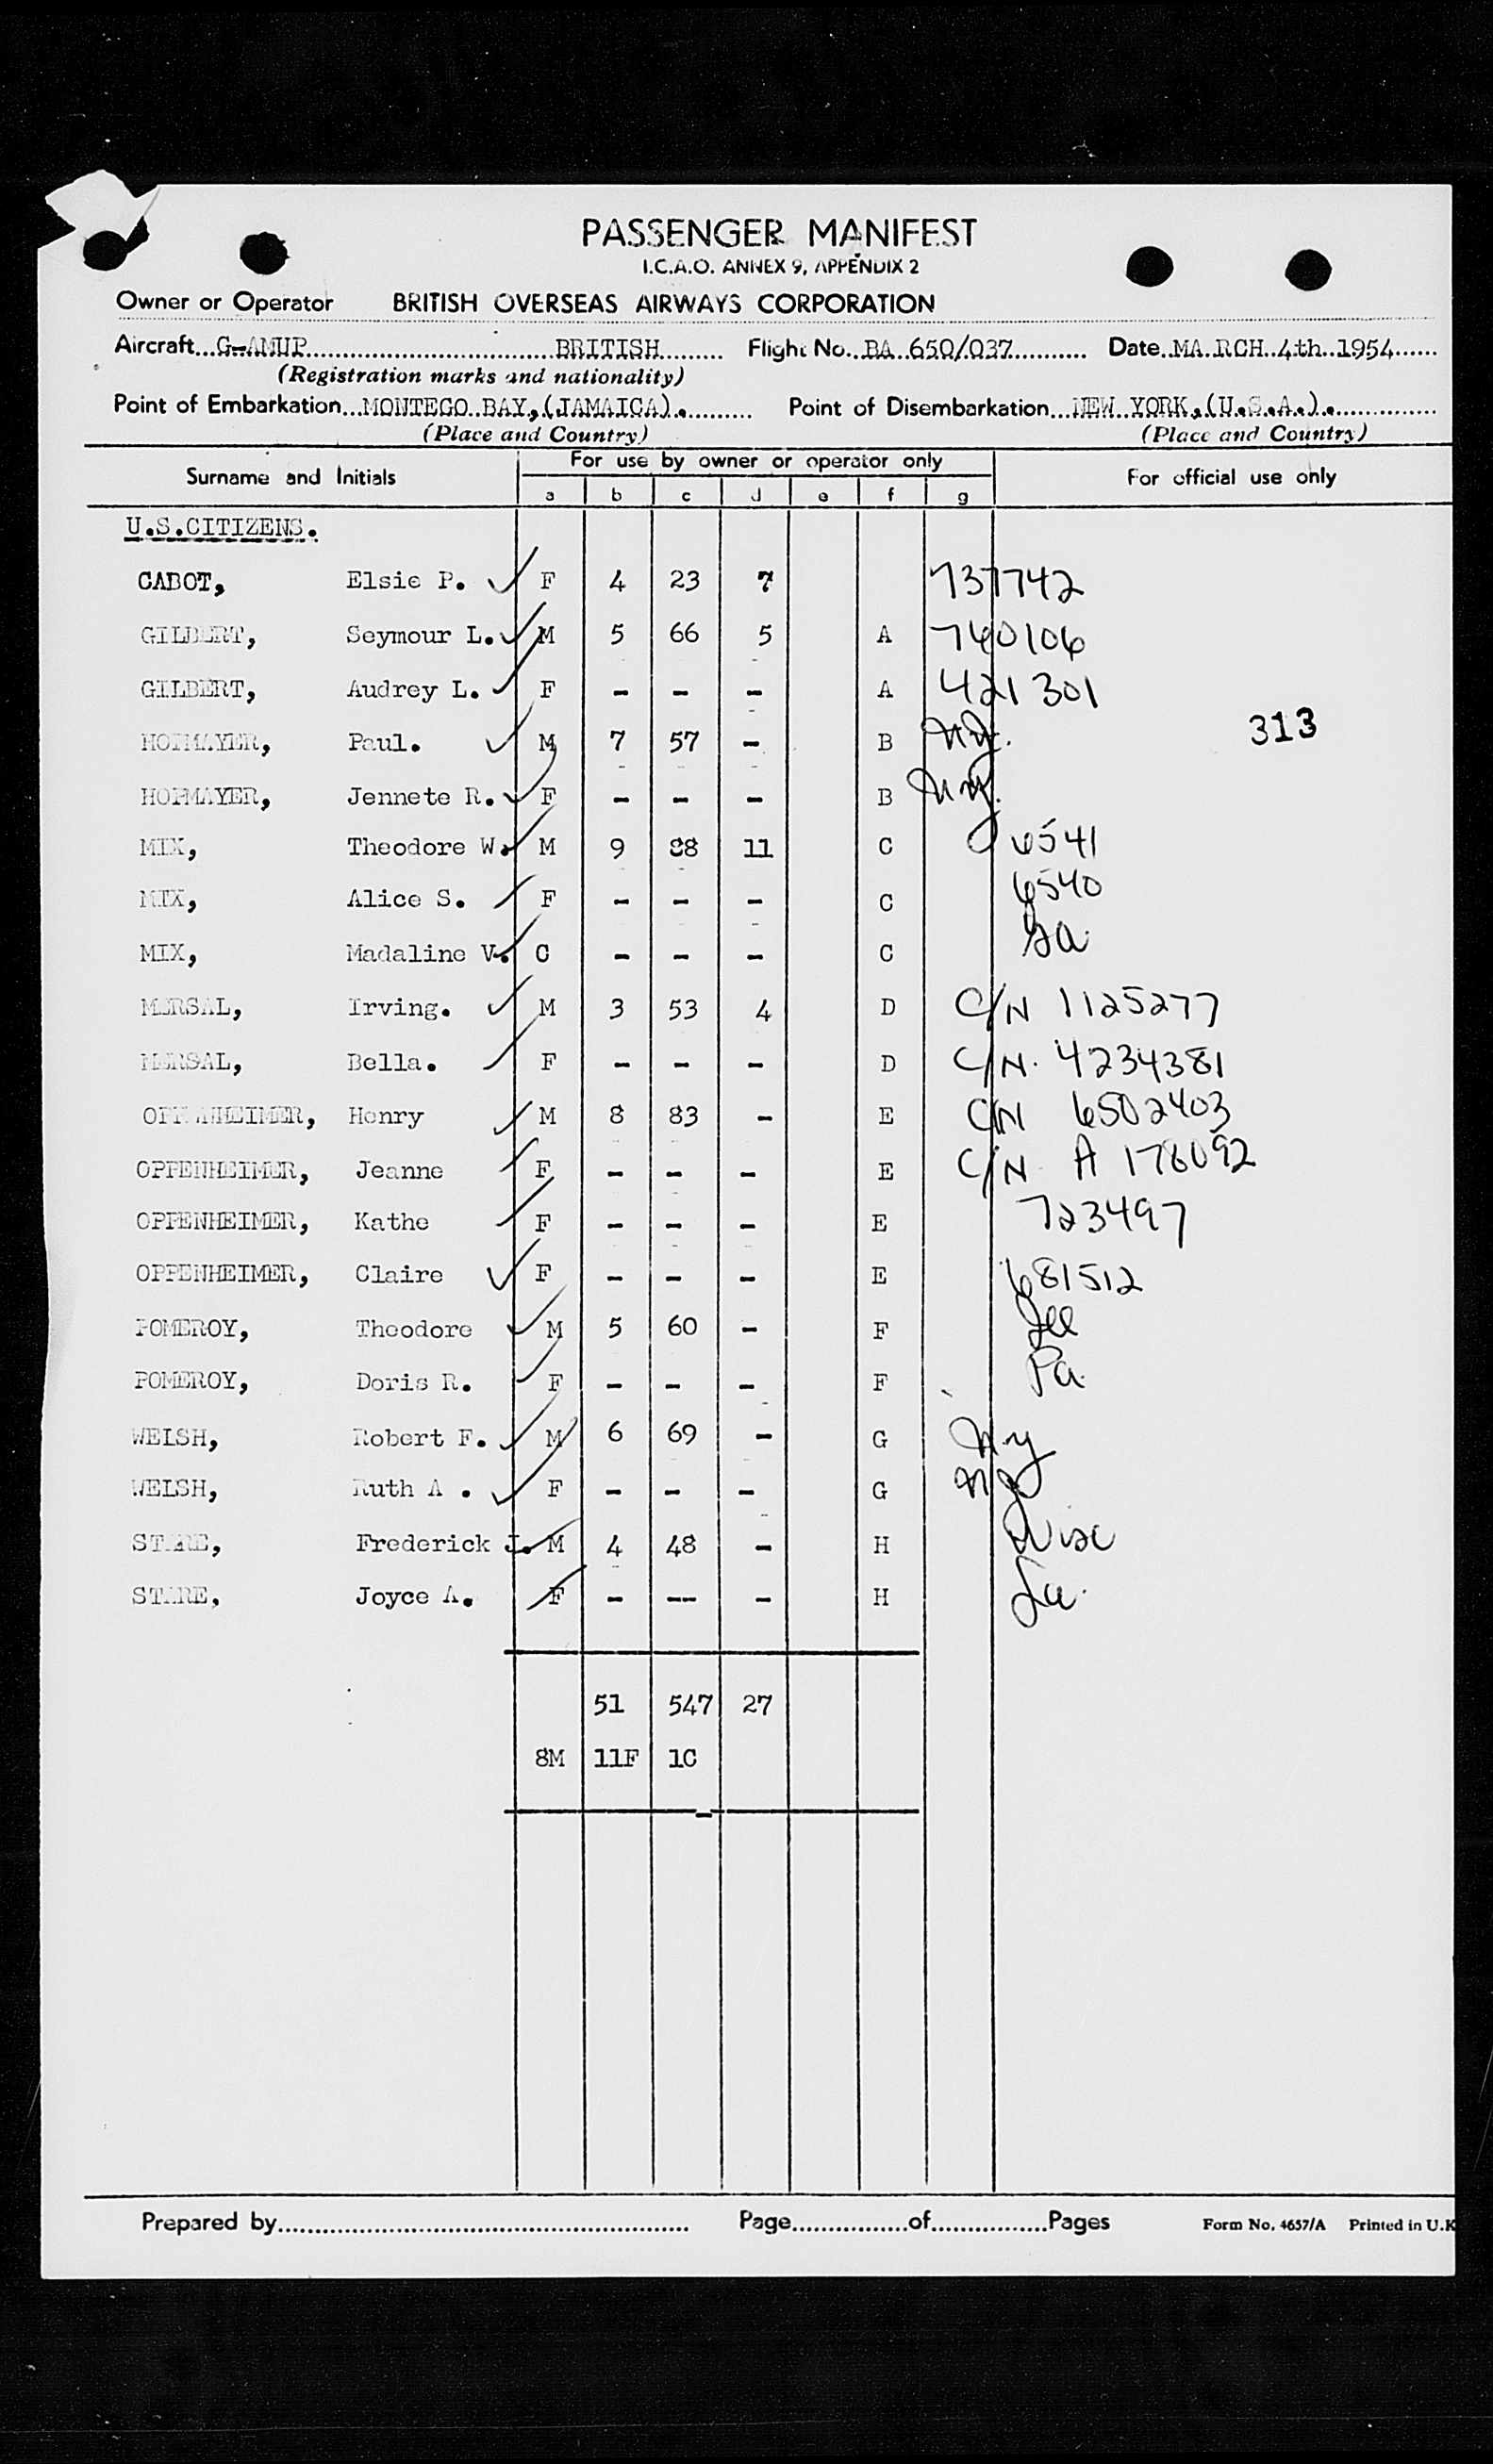 PASSENGER MANIFEST
I.C.A.O. ANNEX 9, APPENDIX 2
Owner or Operator BRITISH OVERSEAS AIRWAYS CORPORATION
Aircraft...G-AMUP...BRITISH... Flight No..BA..650/037... Date..MA.RCH..4th..1954...
(Registration marks and nationality)
Point of Embarkation...MONTEGO..BAY,.(JAMAICA)... Point of Disembarkation...NEW..YORK.,(U.S.A.)...
(Place and Country) (Place and Country)
Surname and Initials For use by owner or operator only For official use only
a b c d e f g
U.S.CITIZENS.
CABOT, Elsie P. F 4 23 7 737742
GILBERT, Seymour L. M 5 66 5 A 740106
GILBERT, Audrey L. F - - - A 421301
HOFMAYER, Paul. M 7 57 - B N.Y. 313
HOFMAYER, Jennete R. F - - - B N.Y.
MIX, Theodore W. M 9 88 11 C 6541
MIX, Alice S. F - - - C 6540
MIX, Madaline V. C - - - C
MARSAL, Irving. M 3 53 4 D C/N 1125277
MARSAL, Bella. F - - - D C/N. 4234381
OPPENHEIMER, Henry M 8 83 - E C/N 6502403
OPPENHEIMER, Jeanne F - - - E C/N A 176092
OPPENHEIMER, Kathe F - - - E 723497
OPPENHEIMER, Claire F - - - E 681512
POMEROY, Theodore M 5 60 - F Ill
POMEROY, Doris R. F - - - F Pa.
WELSH, Robert F. M 6 69 - G N.Y
WELSH, Ruth A . F - - - G
STARE, Frederick J. M 4 48 - H Wisc
STARE, Joyce A. F - -- - H
51 547 27
8M 11F 1C
Prepared by... Page...of...Pages Form No. 4657/A Printed in U.K